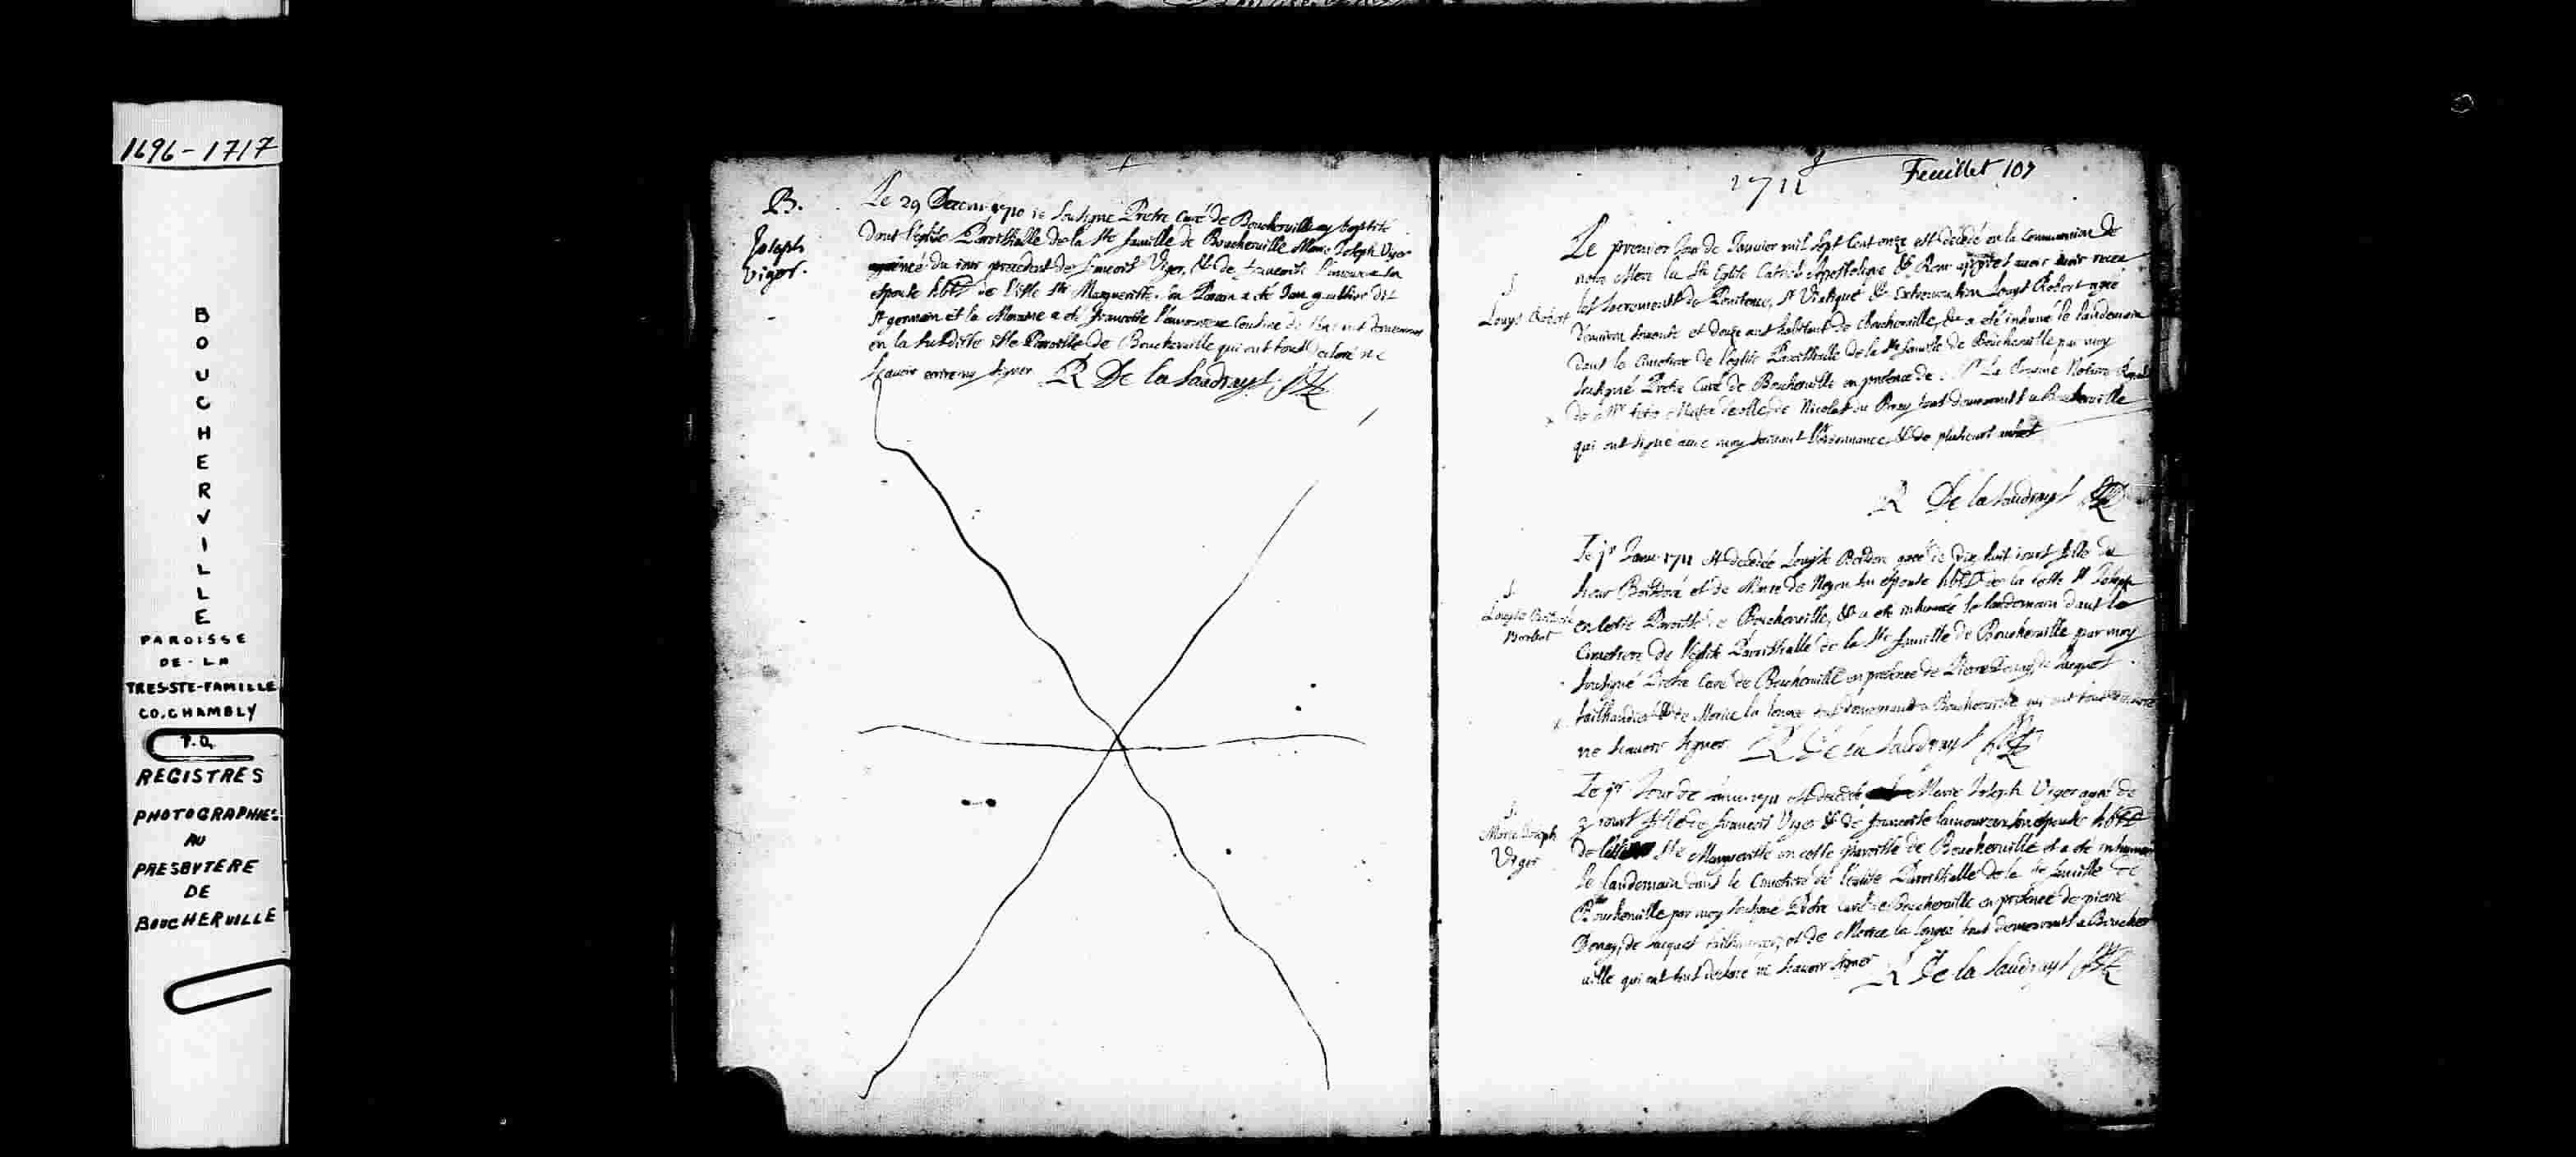 1696-1717
BOUCHERVILLE
PAROISSE
DE-LA
TRES-STE-FAMILLE
CO.CHAMBLY
P.Q.
REGISTRES
PHOTOGRAPHIES
AU
PRESBYTERE
DE
BOUCHERVILLE
B.
Joseph
Viger.
Le 29 Decem. 1710 ie sousigné Pretre Curé de Boucherville ay baptisé
dans l'église Paroissialle de la Ste famille de Boucherville Marie Joseph Viger
du iour precedent de francois Viger, & de francoise l'amoureux sa
espouse hbts de l'isle Ste Marguerite. Son Parain a été Jean gaultier dit
St germain et la Maraine a été francoise l'amoureux Cousine de
en la susditte isle Paroisse de Boucherville qui ont tous declaré ne
scavoir escrire ny signer R De la Saudrays Ptr
1711
Feuillet 107
Le premier Jour de Janvier mil sept Cent onze est decedé en la Communion de
notre Mere la Ste Eglise Cathol. Apostolique & Rom. apprès avoir receu
les Sacrements de Penitence, St Viatique & Extreonction Louys Robert agé
d'environ soixante et douze ans habitant de Boucherville, & a été inhumé le landemain
dans le Cimetiere de l'église Paroissialle de la Ste famille de Boucherville par moy
sousigné Pretre Curé de Boucherville en presence de Sr La Notaire Royal
de Mr Maitre de Nicolas tous demeurants a Boucherville
qui ont signé avec moy suivant l'ordonnance & de plusieurs
S
Louys Robert
R De la Saudrays Ptr
Le 1er Janv. 1711 est decedée Louyse agée de dix huit iours fille du
Sieur et de Marie de Noyon son espouse hbts de la Coste St Joseph
en cette Paroisse de Boucherville, & a eté inhumée le landemain dans le
Cimetiere de l'église Paroissialle de la Ste famille de Boucherville par moy
sousigné Pretre Curé de Boucherville en presence de Pierre de Jacques
taillhandier & de Morice la longé tous demeurants a Boucherville qui ont tous
ne scavoir signer R De la Saudrays Ptr
S.
Louyse
Le 1er Jour de Janv. 1711 est decedée Marie Joseph Viger agée de
3 iours fille de francois Viger & de francoise lamoureux son espouse hbts
de Ste Marguerite en cette paroisse de Boucherville et a été inhumée
le landemain dans le Cimetiere de l'église Paroissialle de la Ste famille de
Boucherville par moy sousigné Pretre Curé de Boucherville en presence de pierre
de Jacques et de Morice la longé tous demeurants a Boucher
ville qui ont tous declaré ne scavoir signer R De la Saudrays Ptr
S.
Marie Joseph
Viger